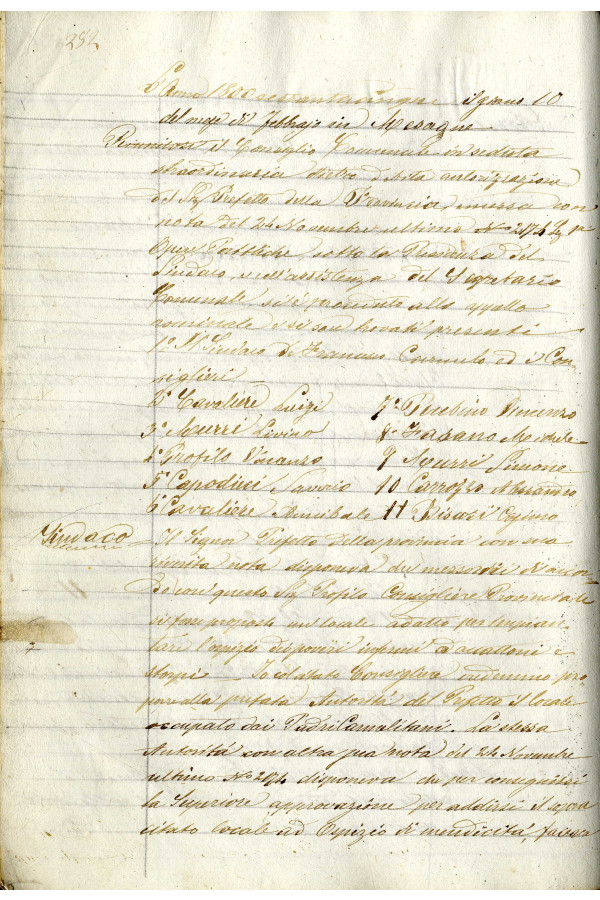 252
L'Anno 1800settantacinque il giorno 10
del mese di Febbrajo in Mesagne
Riunitosi il Consiglio Comunale in seduta
straordinaria dietro autorizzazione
del Sig. Prefetto della Provincia, emessa con
nota del 24 Novembre ultimo No 2174
Opere Pubbliche, sotto la Presidenza del
Sindaco, e coll'assistenza del Segretario
Comunale si è proceduto allo appello
nominale e si son trovati presenti
1o Il Sindaco De Franceso Carmelo ed i Con-
siglieri
2o Cavaliere Luigi 7o Perebino Vincenzo
3o Murri Livino 8o Fasano Michele
4o Profilo Vincenzo 9 Murri Simone
5o Capodieci Saverio 10 Carrozzo Alessandro
6o Cavaliere Annibale 11 Risari Cosimo
Sindaco Il Signor Prefetto della provincia con sua
riverita nota disponeva che d'accor-
do con questo Sig. Profilo Consigliere Provinciale
si fosse proposto un locale adatto per impian-
tare l'ospizio dei poveri infermi accattoni e
storpi Io col citato Consigliere credemmo pro-
porre alla prefata Autorità del Prefetto il locale
occupato dai Padri Carmelitani. La stessa
Autorità con altra sua nota del 24 Novembre
ultimo No 2174 disponeva che per conseguirsi
la Superiore approvazione per addirsi il sopra
citato locale ad Ospizio di mendicità, facesse